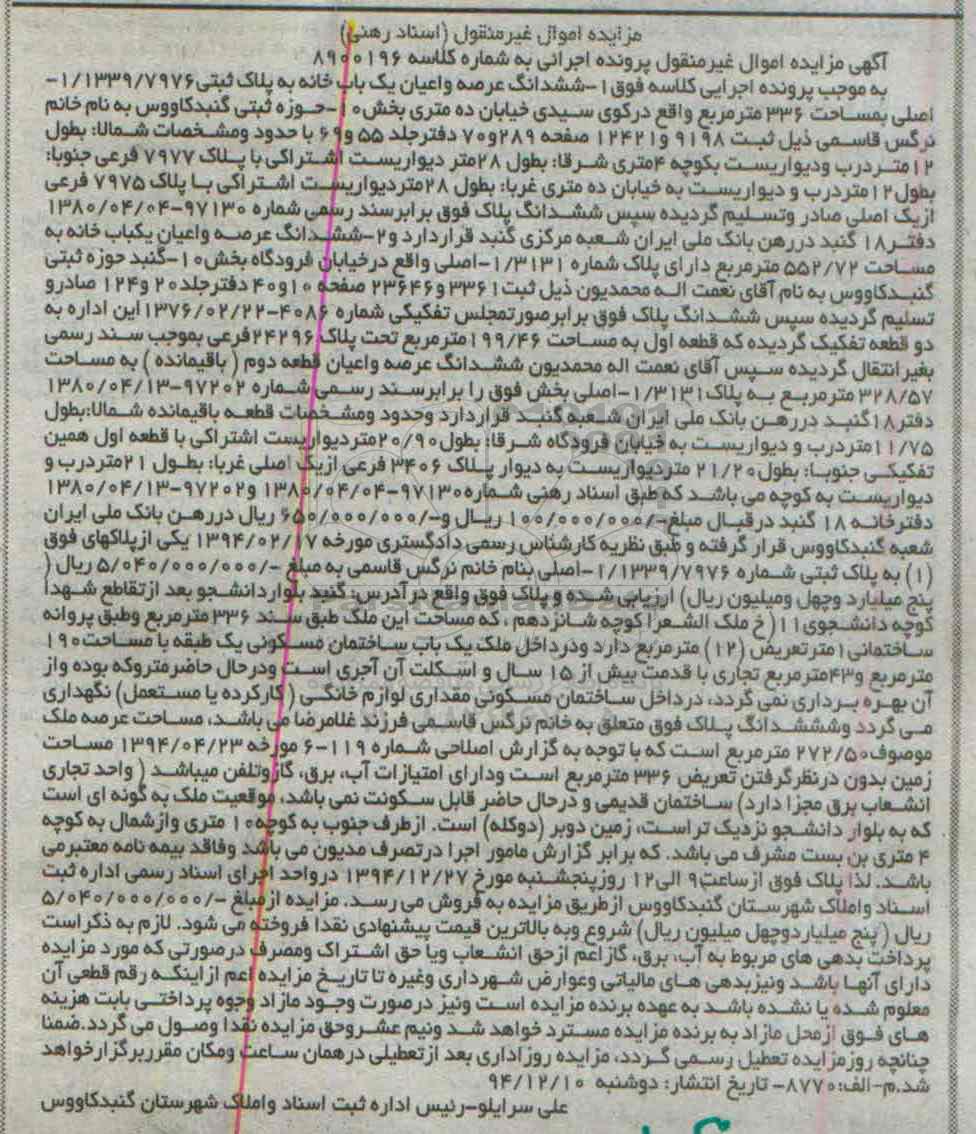 مزایده اموال غیرمنقول (اسناد رهنی)
آگهی مزایده اموال غیرمنقول پرونده اجرائی به شماره کلاسه ۸۹۰۰۱۹۶
به موجب پرونده اجرایی کلاسه فوق۱-ششدانگ عرصه واعیان یک باب خانه به پلاک ثبتی۱/۱۱۳۳۹/۷۹۷۶-
اصلی بمساحت ۳۳۶ مترمربع واقع درکوی سیدی خیابان ده متری بخش۱۰-حوزه ثبتی گنبدکاووس به نام خانم
نرگس قاسمی ذیل ثبت ۹۱۹۸ و۱۲۴۲۱ صفحه ۲۸۹و۷۰ دفترجلد ۵۵ و۶۹ با حدود ومشخصات شمالا: بطول
۱۲متردرب ودیواریست بکوچه ۴متری شرقا: بطول ۲۸متر دیواریست اشتراکی با پلاک ۷۹۷۷ فرعی جنوبا:
بطول۱۲متردرب و دیواریست به خیابان ده متری غربا: بطول ۲۸متردیواریست اشتراکی با پلاک ۷۹۷۵ فرعی
ازیک اصلی صادر وتسلیم گردیده سپس ششدانگ پلاک فوق برابرسند رسمی شماره ۹۷۱۳۰-۱۳۸۰/۰۴/۰۴
دفتر۱۸ گنبد دررهن بانک ملی ایران شعبه مرکزی گنبد قراردارد و۲-ششدانگ عرصه واعیان یکباب خانه به
مساحت ۵۵۲/۷۲ مترمربع دارای پلاک شماره ۱/۳۱۳۱-اصلی واقع درخیابان فرودگاه بخش۱۰-گنبد حوزه ثبتی
گنبدکاووس به نام آقای نعمت اله محمدیون ذیل ثبت۳۳۶۱ و۲۳۶۴۶ صفحه ۱۰و۴۰ دفترجلد۲۰ و۱۲۴ صادرو
تسلیم گردیده سپس ششدانگ پلاک فوق برابرصورتمجلس تفکیکی شماره ۴۰۸۶-۱۳۷۶/۰۲/۲۲ این اداره به
دو قطعه تفکیک گردیده که قطعه اول به مساحت ۱۹۹/۴۶مترمربع تحت پلاک ۲۴۲۹۶فرعی بموجب سند رسمی
بغیرانتقال گردیده سپس آقای نعمت اله محمدیون ششدانگ عرصه واعیان قطعه دوم ( باقیمانده ) به مساحت
۳۲۸/۵۷ مترمربع به پلاک۱/۳۱۳۱-اصلی بخش فوق را برابرسند رسمی شماره ۹۷۲۰۲-۱۳۸۰/۰۴/۱۳
دفتر۱۸گنبد دررهن بانک ملی ایران شعبه گنبد قراردارد وحدود ومشخصات قطعه باقیمانده شمالا:بطول
۱۱/۷۵متردرب و دیواریست به خیابان فرودگاه شرقا: بطول۲۰/۹۰متردیواریست اشتراکی با قطعه اول همین
تفکیکی جنوبا: بطول۲۱/۲۰ متردیواریست به دیوار پلاک ۳۴۰۶ فرعی ازیک اصلی غربا: بطول ۲۱متردرب و
دیواریست به کوچه می باشد که طبق اسناد رهنی شماره۹۷۱۳۰-۱۳۸۰/۰۴/۰۴ و۹۷۲۰۲-۱۳۸۰/۰۴/۱۳
دفترخانه ۱۸ گنبد درقبال مبلغ-/۱۰۰/۰۰۰/۰۰۰ ریال و-/۶۵۰/۰۰۰/۰۰۰ ریال دررهن بانک ملی ایران
شعبه گنبدکاووس قرار گرفته و طبق نظریه کارشناس رسمی دادگستری مورخه ۱۳۹۴/۰۲/۱۷ یکی ازپلاکهای فوق
(۱) به پلاک ثبتی شماره ۱/۱۱۳۳۹/۷۹۷۶-اصلی بنام خانم نرگس قاسمی به مبلغ -/۵/۰۴۰/۰۰۰/۰۰۰ ریال (
پنج میلیارد وچهل ومیلیون ریال) ارزیابی شده و پلاک فوق واقع درآدرس: گنبد بلواردانشجو بعد ازتقاطع شهدا
کوچه دانشجوی۱۱(خ ملک الشعرا کوچه شانزدهم ، که مساحت این ملک طبق سند ۳۳۶ مترمربع وطبق پروانه
ساختمانی ۱مترتعریض (۱۲) مترمربع دارد ودرداخل ملک یک باب ساختمان مسکونی یک طبقه با مساحت۱۹۰
مترمربع و۴۳مترمربع تجاری با قدمت بیش از ۱۵ سال و اسکلت آن آجری است ودرحال حاضرمتروکه بوده واز
آن بهره برداری نمی گردد، درداخل ساختمان مسکونی مقداری لوازم خانگی ( کارکرده یا مستعمل) نگهداری
می گردد وشششدانگ پلاک فوق متعلق به خانم نرگس قاسمی فرزند غلامرضا می باشد، مساحت عرصه ملک
موصوف۲۷۲/۵۰ مترمربع است که با توجه به گزارش اصلاحی شماره ۱۱۹-۶ مورخه ۱۳۹۴/۰۴/۲۳ مساحت
زمین بدون درنظرگرفتن تعریض ۳۳۶ مترمربع است ودارای امتیازات آب، برق، گازوتلفن میباشد ( واحد تجاری
انشعاب برق مجزا دارد) ساختمان قدیمی و درحال حاضر قابل سکونت نمی باشد، موقعیت ملک به گونه ای است
که به بلوار دانشجو نزدیک تراست، زمین دوبر (دوکله) است. ازطرف جنوب به کوچه۱۰ متری وازشمال به کوچه
۴ متری بن بست مشرف می باشد. که برابر گزارش مامور اجرا درتصرف مدیون می باشد وفاقد بیمه نامه معتبرمی
باشد. لذا پلاک فوق ازساعت۹ الی۱۲ روزپنجشنبه مورخ ۱۳۹۴/۱۲/۲۷ درواحد اجرای اسناد رسمی اداره ثبت
اسناد واملاک شهرستان گنبدکاووس ازطریق مزایده به فروش می رسد. مزایده ازمبلغ -/۵/۰۴۰/۰۰۰/۰۰۰
ریال ( پنج میلیاردوچهل میلیون ریال) شروع وبه بالاترین قیمت پیشنهادی نقدا فروخته می شود. لازم به ذکراست
پرداخت بدهی های مربوط به آب، برق، گازاعم ازحق انشعاب ویا حق اشتراک ومصرف درصورتی که مورد مزایده
دارای آنها باشد ونیزبدهی های مالیاتی وعوارض شهرداری وغیره تا تاریخ مزایده اعم ازاینکه رقم قطعی آن
معلوم شده یا نشده باشد به عهده برنده مزایده است ونیز درصورت وجود مازاد وجوه پرداختی بابت هزینه
های فوق ازمحل مازاد به برنده مزایده مسترد خواهد شد ونیم عشروحق مزایده نقدا وصول می گردد.ضمنا
چنانچه روزمزایده تعطیل رسمی گردد، مزایده روزاداری بعد ازتعطیلی درهمان ساعت ومکان مقرربرگزارخواهد
شد.م-الف:۸۷۷۰- تاریخ انتشار: دوشنبه ۹۴/۱۲/۱۰
علی سرایلو-رئیس اداره ثبت اسناد واملاک شهرستان گنبدکاووس